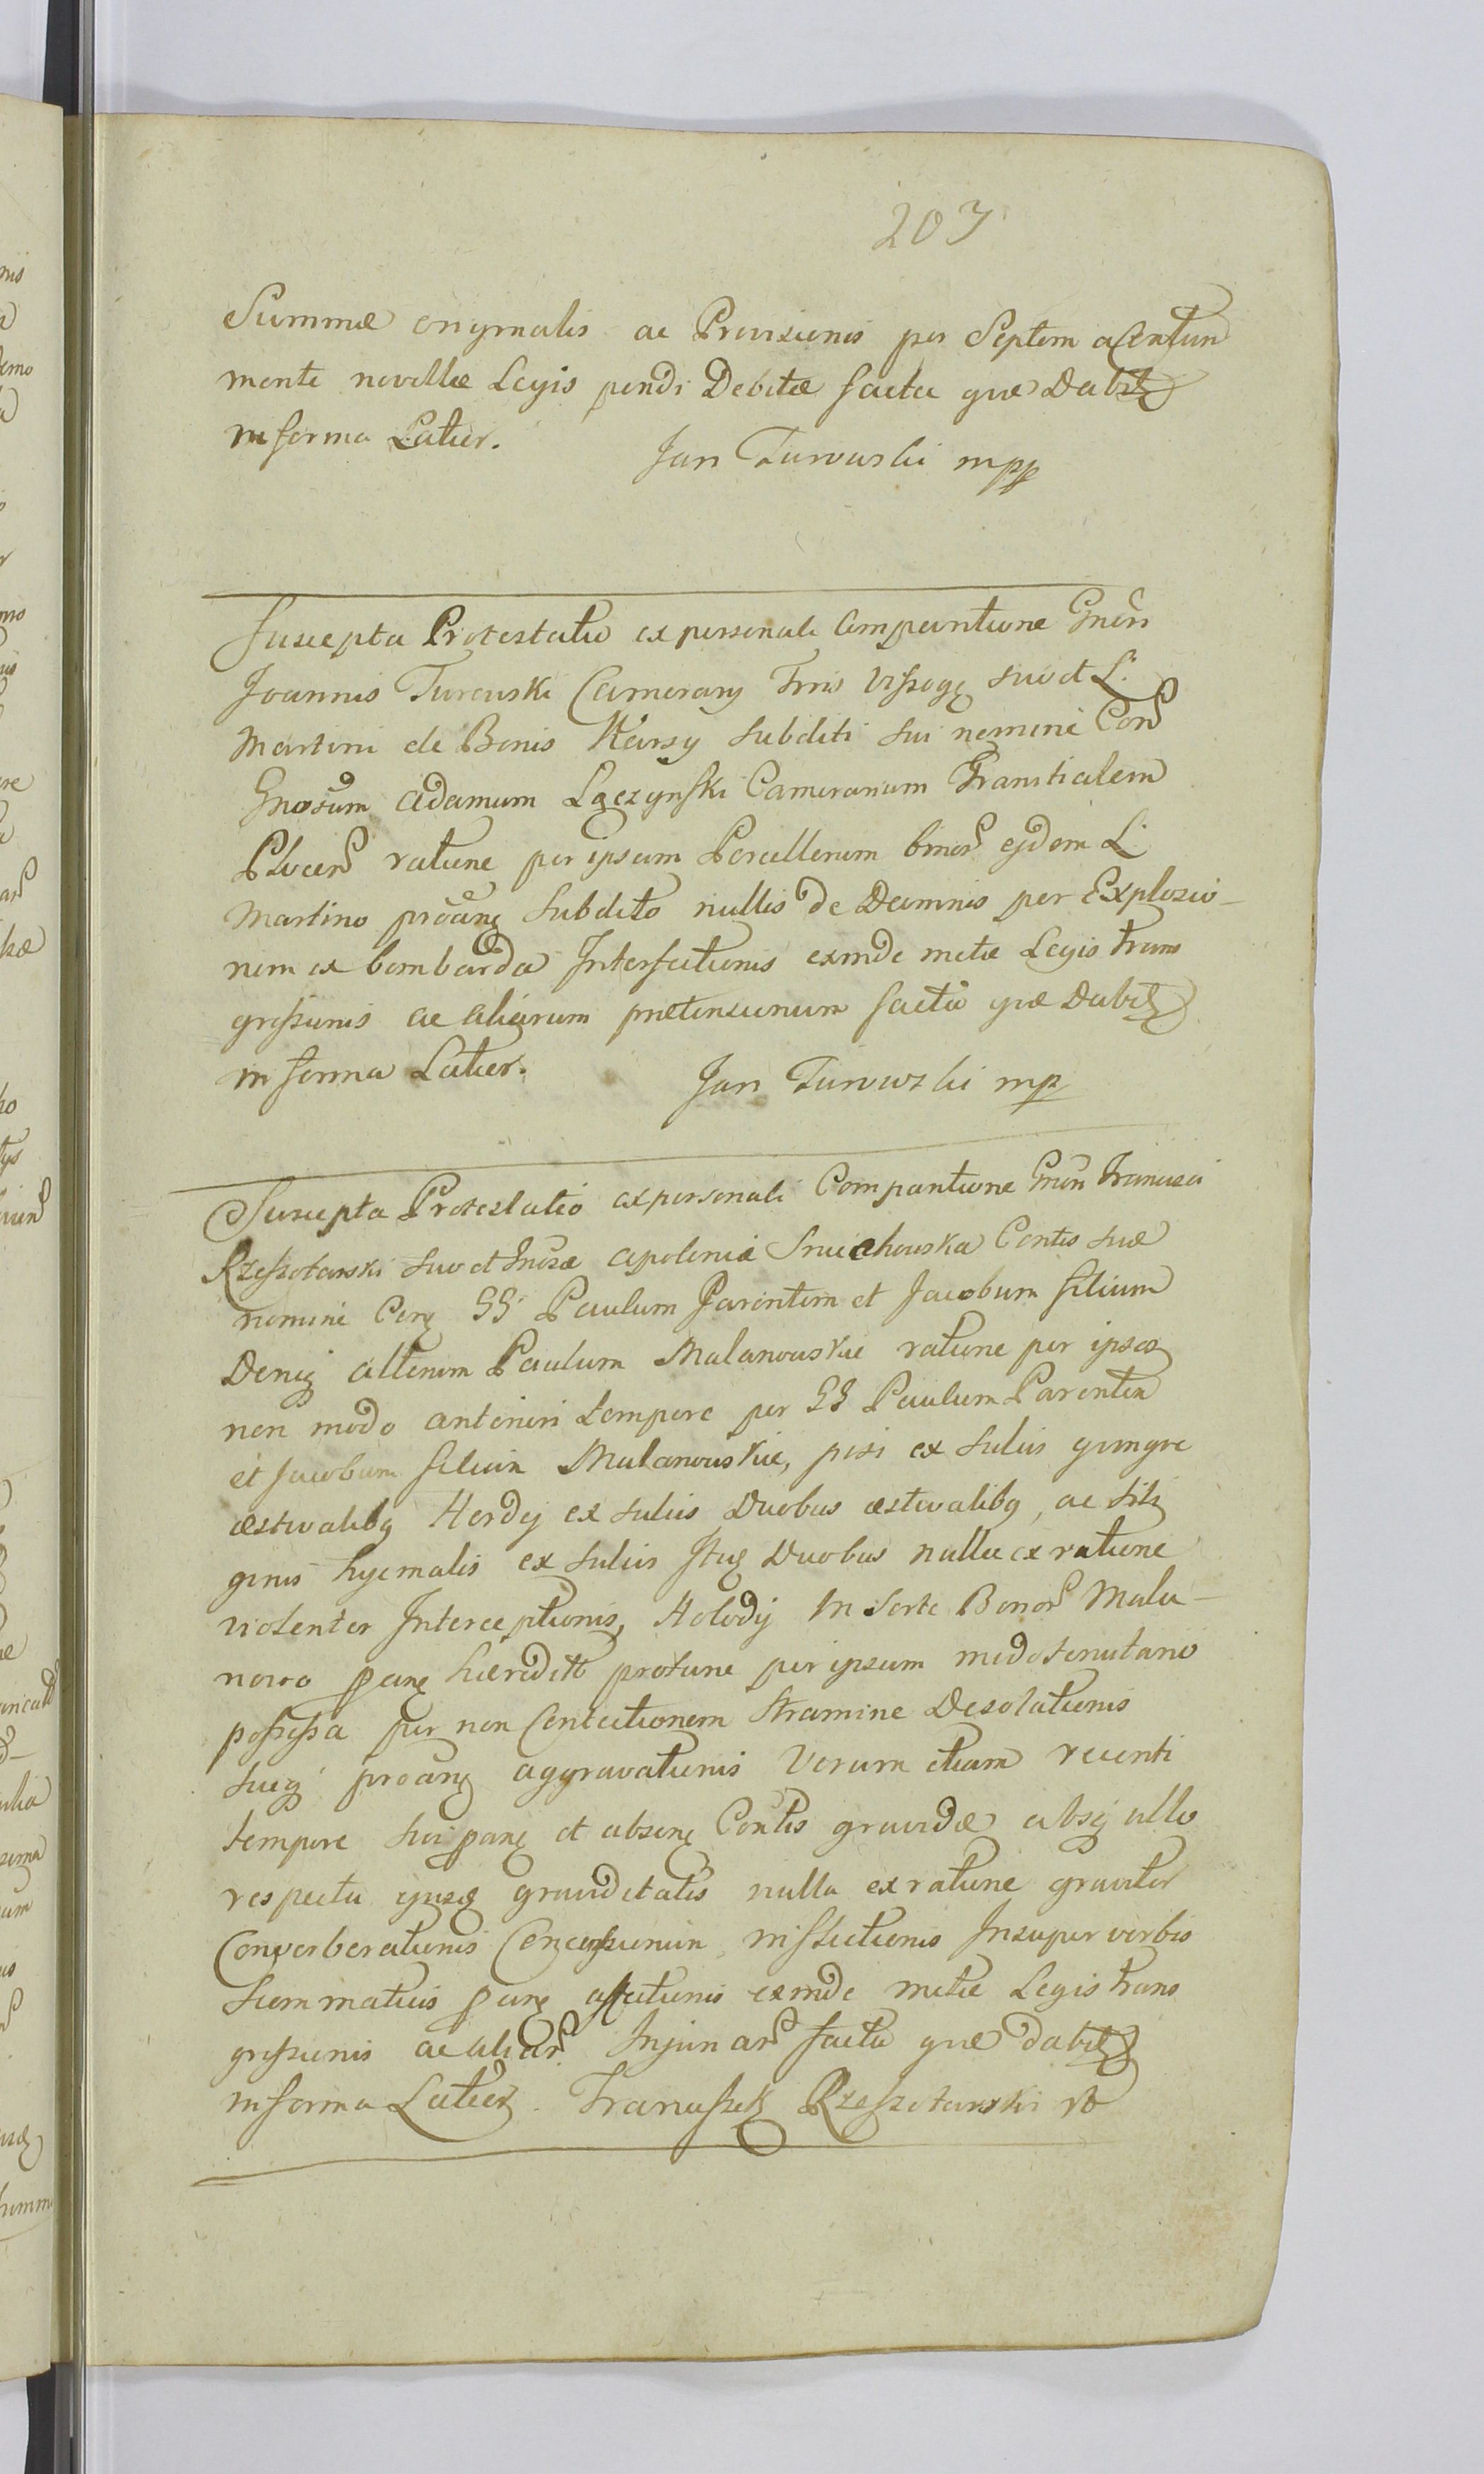 207
Summæ originalis ac Provisionis per Septem a Centum
mente novellæ Legis pendi Debitæ facta quæ Dabit
in forma Latier.
Jan Turowski mpp
Suscepta Protestatio ex personali Comparitione Gnosi
Joannis Turowski Camerarij Trris Vissog suo et L:
Martini de Bonis Karsy Subditi sui nomine Con
Gnosum Adamum Łączynski Camerarium Granitialem
Plocen ratione per ipsum Porcellorum binor ejdem L:
Martino Subdito nullis de Damnis per Explosio-
nem ex bombarda Interfectionis exinde metæ Legis trans
gressionis ac aliarum prætensionum facta quæ Dabit
in forma Latier.
Jan Turowski mp
Suscepta Protestatio ex personali Comparitione Gnosi Francisci
Rzeszotarski suo et Gnosæ Apoloniæ Contis suæ
nomine Con GG Paulum Parentem et Jacobum filium
Deniq alterum Paulum Malanowskie ratione per ipsos
non modo anteriori tempore per GG Paulum Parentem
et Jacobum filium Malanowskie, pisi ex sulcis quinque
æstivalibq Hordej ex sulcis Duobus æstivalibq, ac sili
ginis hyemalis ex sulcis Duobus nulla ex ratione
violenter Interceptionis, Holody In Sorte Bonor Mala-
nowo hæredit protunc per ipsum modo tenutario
possessa per non Contectionem Stramine Desolationis
aggravationis Verum etiam recenti
tempore et absen Contis gravidæ absq ullo
respectu ejusq graviditatis nulla ex ratione graviter
Converberationis inflictionis Insuper verbis
affectionis exinde metæ Legis trans
gressionis ac aliar Injuriar facta quæ dabit
in forma Latier. Franciszek Rzeszotarski